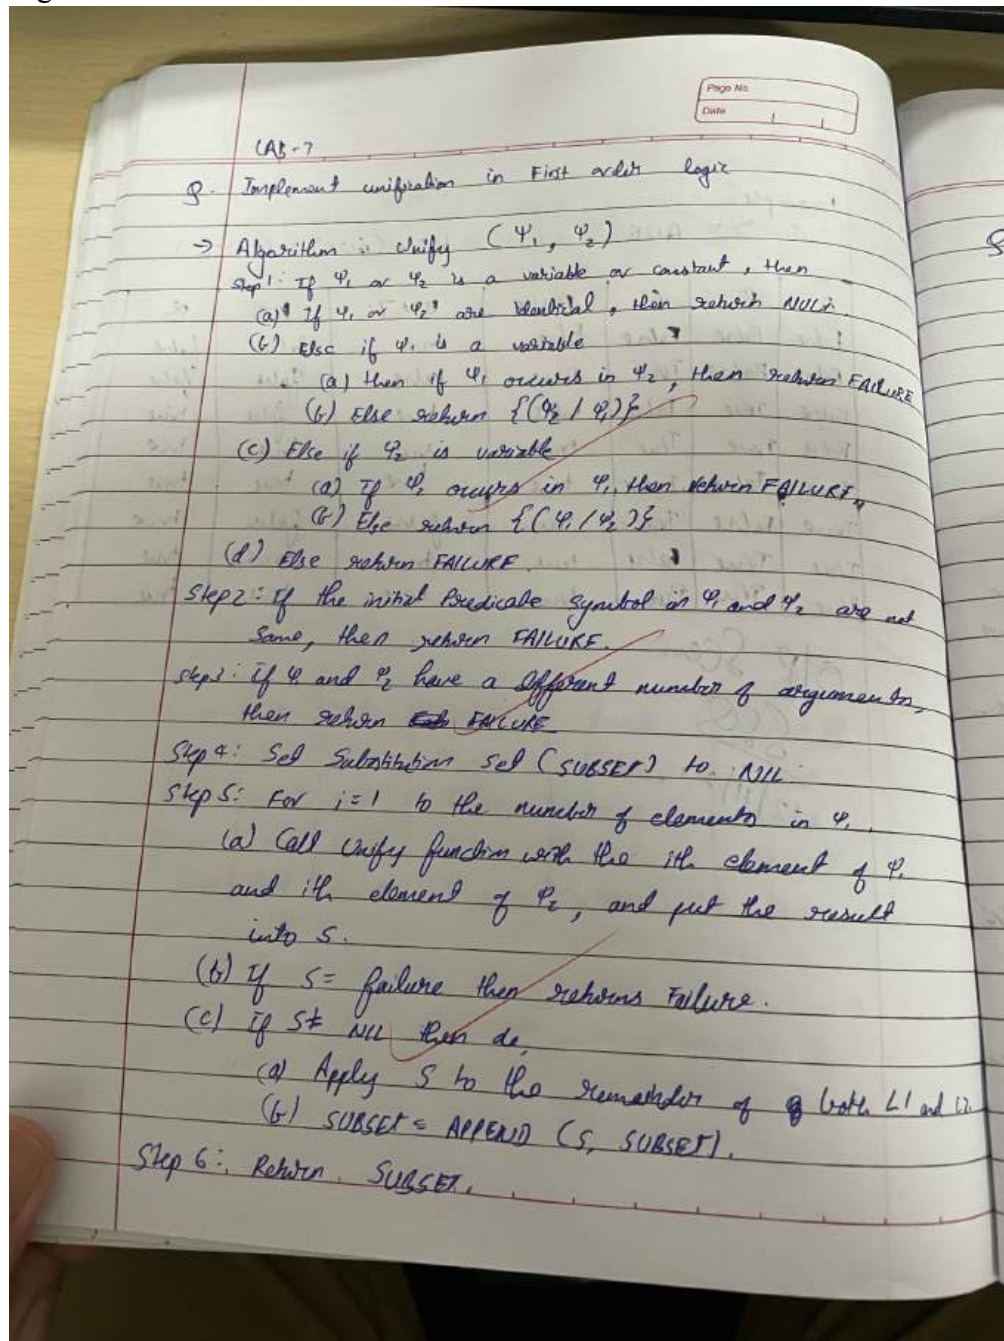 Page No.
Date
LAB-7
Q. Implement unification in First order logic
→ Algorithm : Unify (Ψ₁, Ψ₂)
Step 1: If Ψ₁ or Ψ₂ is a variable or constant, then
(a) If Ψ₁ or Ψ₂ are identical, then return NULL.
(b) Else if Ψ₁ is a variable
(a) then if Ψ₁ occurs in Ψ₂, then return FAILURE
(b) Else return {(Ψ₂ / Ψ₁)}
(c) Else if Ψ₂ is variable
(a) If Ψ₂ occurs in Ψ₁, then return FAILURE,
(b) Else return {(Ψ₁ / Ψ₂)}
(d) Else return FAILURE.
Step 2: If the initial Predicate symbol in Ψ₁ and Ψ₂ are not
same, then return FAILURE.
Step 3: If Ψ₁ and Ψ₂ have a different number of arguments,
then return FAILURE
Step 4: Set Substitution set (SUBSET) to NIL.
Step 5: For i=1 to the number of elements in Ψ₁.
(a) Call Unify function with the ith element of Ψ₁
and ith element of Ψ₂, and put the result
into S.
(b) If S = failure then returns Failure.
(c) If S ≠ NIL then do,
(a) Apply S to the remainder of both L1 and L2.
(b) SUBSET = APPEND (S, SUBSET).
Step 6: Return SUBSET.